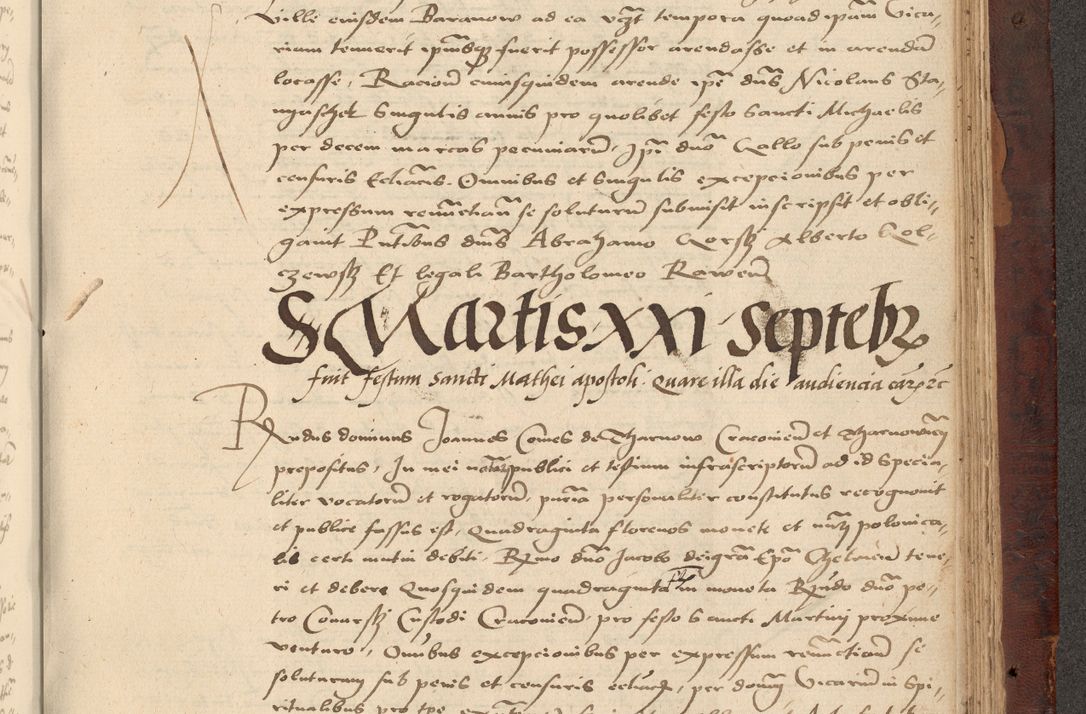 Ville eiusdem Baranow ad ea vcʒt tempora quoad ip̃am Vica„
riam tenuerit ipiusqʒ fuerit possessor arendasse et in arendã
locasse, Racioñ cuiusquidem arende ip̃e dñs Nicolaus Sta„
singulis annis pro quolibet festo Sancti Michaelis
per decem marcas pecuniarũ, Ip̃i dño Gallo sub penis et
censuris Ecl̃iacis. Omnibus et singulis excepcionibus per
expressum se soluturũ submisit inscripsit et obli„
gauit Pñtibus dñis Abrahamo Alberto Gol„
czewsky Et legali Bartholomeo
S Martis XXI Septebr
fuit festum Sancti Mathei apostoli quare illa die audiencia
Rndus dominus Ioannes Comes de Tharnow Cracouieñ et
prepositus, In mei notarij publici et testium infrascriptorũ ad id specia„
liter vocatorũ et rogatorũ, pñcia personaliter constitutus recognouit
et publice fassus est, Quadraginta florenos monete et nũi polonica„
lis certi mutui debiti, Rmo dño Iacobo dei gr̃a Ep̃o Chelmeñ tene„
ri et debere Quosquidem quadraginta in moneta Rndo dño pe„
tro Custodi Cracouieñ, pro festo Sancti Martini proxime
venturo, Om̃ibus excepcionibus per expressum se
soluturum sub penis et censuris per domũ Vicariũ in Spi„
ritualibus pro tpe